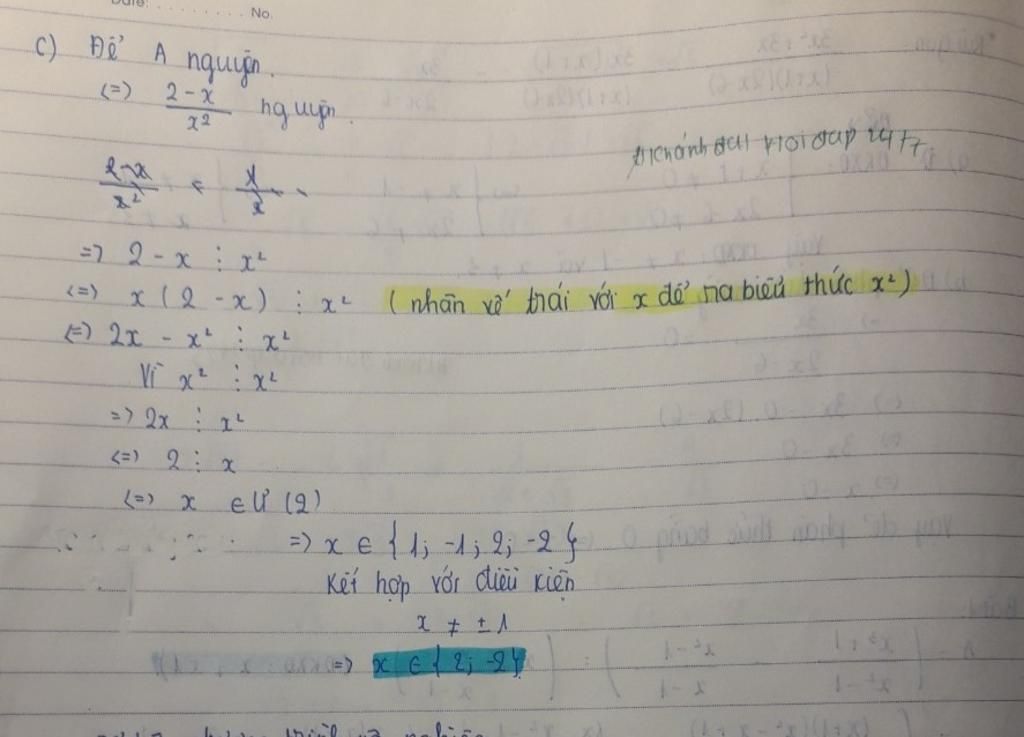 No.
c) Để A nguyên.
<=> 2-x/x² nguyên.
2-x/x²
=> 2 - x ⋮ x²
<=> x (2 - x) ⋮ x² (nhân vế trái với x để ra biểu thức x²)
<=> 2x - x² ⋮ x²
Vì x² ⋮ x²
=> 2x ⋮ x²
<=> 2 ⋮ x
<=> x ∈ Ư (2)
=> x ∈ {1; -1; 2; -2}
Kết hợp với điều kiện
x ≠ ±1
=> x ∈ {2; -2}